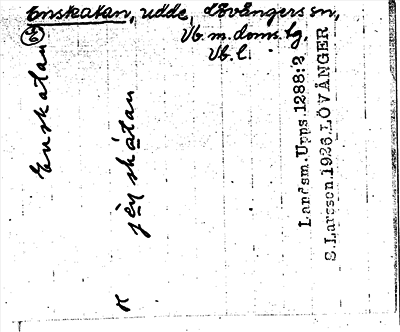 Enskatan, udde, Lövångers sn,
Vb. m. doms. bg.
Vb. l.
Enskatan
Landsm. Upps. 1288:2
S. Larsson. 1926. LÖVÅNGER